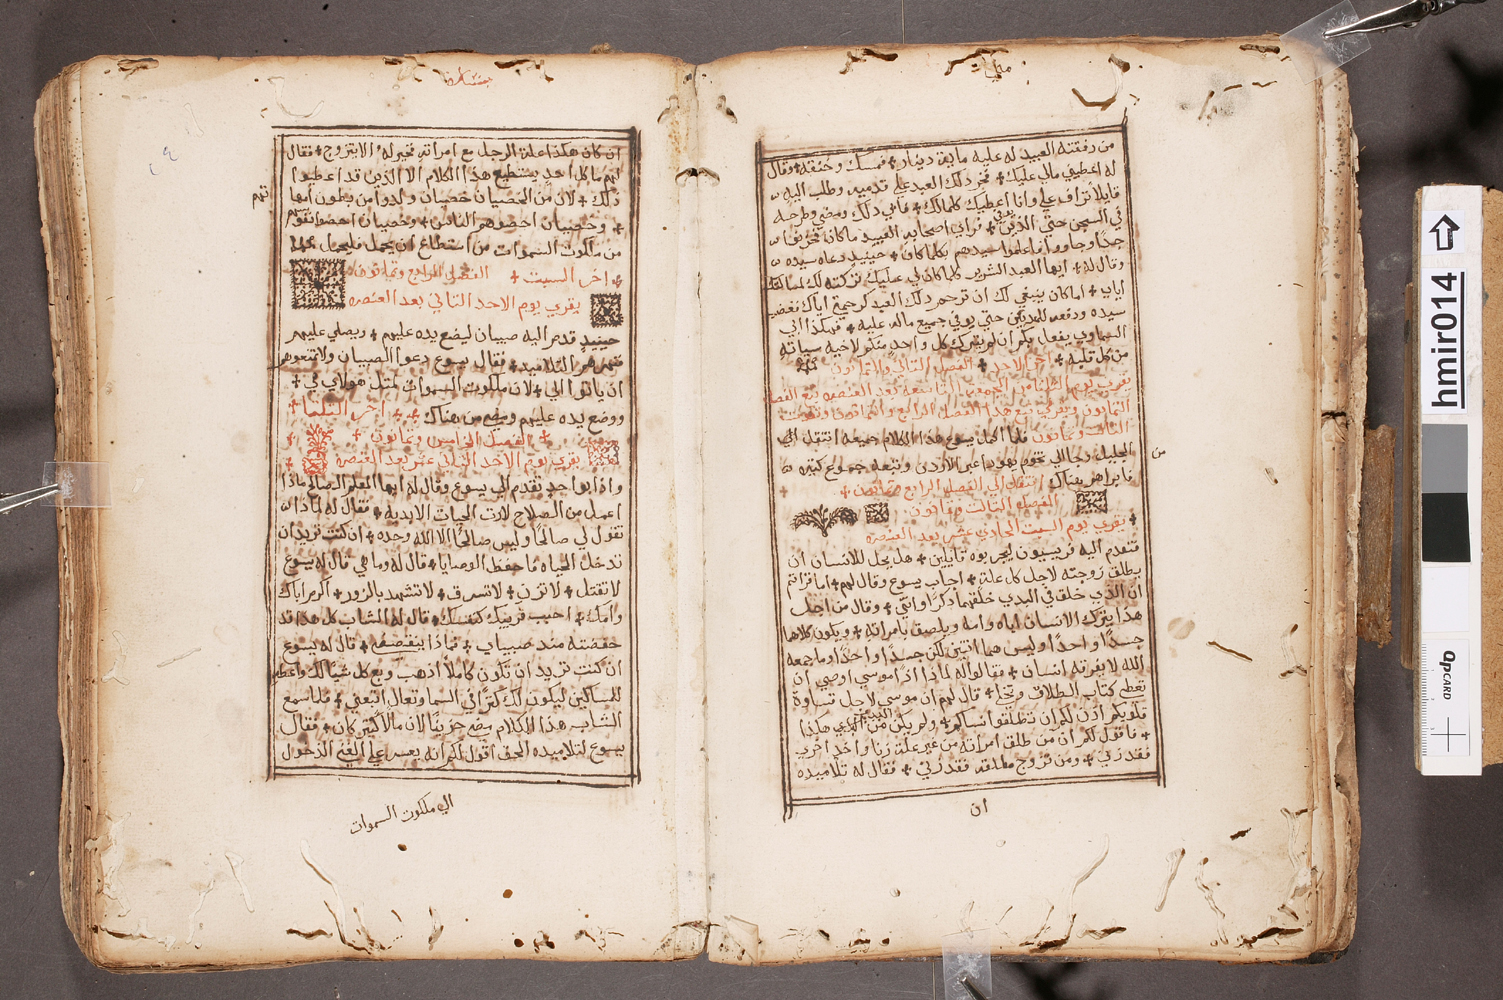 متى
من رفقته العبيد له عليه ماية دينار ✢ فمسك وخنقه ✢ وقال
له اعطيني مالي عليك ✢ فخر ذلك العبد على قدميه وطلب اليه
قايلا تراف علي وانا اعطيك كلمالك ✢ فابي ذلك ومضي وطرحه
في السجن حتي الدين ✢ فراي اصحابه العبيد ما كان فحزنوا
جدا وجاووا فاعلموا سيدهم بكلما كان ✢ حينيذ دعاه سيده
وقال له ✢ ايها العبد الشرير كلما كان لي عليك تركته لك لمسالتك
اياي ✢ اما كان ينبغي لك ان ترحم ذلك العبد كرحمتي اياك فغضب
سيده ودفعه للمعذبين حتي يوفي جميع ماله عليه ✢ فهكذا ابي
السماوي يفعل بكم ان لم يترك كل واحد منكم لاخيه سياته
من كل قلبه ✢ اخر الاحد ✢ الفصل الثاني والثمانون
يقري يوم الثلثا من الجمعه التاسعه بعد العنصره تبع الفصل
الثمانون ويقري تبع هذا الفصل الرابع والثمانون وتفوت
الثالث وثمانون فلما اكمل يسوع هذا الكلام جميعه انتقل الي
الجليل وجا الي تخوم يهودا عبر الاردن وتبعه جموع كثيره
من
فابراهم هناك انتقل الي الفصل الرابع وثمانون ✢
الفصل الثالث وثمانون
✢ يقري يوم السبت الحادي عشر بعد العنصره
فتقدم اليه فريسيون ليجربوه قايلين ✢ هل يحل للانسان ان
يطلق زوجته لاجل كل علة ✢ اجاب يسوع وقال لهم ✢ اما قراتم
ان الذي خلق في البدي خلقهما ذكرا وانثي ✢ وقال من اجل
هذا يترك الانسان اباه وامه ويلصق بامراته ✢ ويكون كلاهما
جسدا واحدا وليس هما اثنين لكن جسدا واحدا وما جمعه
الله لا يفرقه انسان ✢ فقالوا له لماذا اذا موسي اوصي ان
نعطي كتاب الطلاق وتخلا ✢ قال لهم ان موسي لاجل قساوة
قلوبكم اذن لكم ان تطلقوا نساكم ✢ ولم يكن من البدي هكذا
✢ فاقول لكم ان من طلق امراته من غير علة زنا واخذ اخري
فقد زني ✢ ومن تزوج مطلقه فقد زني ✢ فقال له تلاميذه
ان
بشارة
ان كان هكذا علة الرجل مع امراته فخير له الا يتزوج ✢ فقال
لهم ما كل احد يستطيع هذا الكلام الا الذين قد اعطيوا
ذلك ✢ لان من الخصيان خصيان ولدوا من بطون امها
تهم
✢ وخصيان اخصوهم الناس ✢ وخصيان اخصوا نفوسهم
من ملكوت السموات من استطاع ان يحمل فليحمل
✢ اخر السبت ✢ الفصل الرابع وثمانون
يقري يوم الاحد الثاني بعد العنصره
حينيذ قدم اليه صبيان ليضع يده عليهم ✢ ويصلي عليهم
فنهرهم التلاميذ ✢ فقال يسوع دعوا الصبيان ولا تمنعوهم
ان ياتوا الي ✢ لان ملكوت السموات لمثل هولاي هي ✢
ووضع يده عليهم ومضي من هناك ✢ ✢ اخر الثلثا ✢
✢ الفصل الخامس وثمانون ✢
يقري يوم الاحد الثاني عشر بعد العنصره ✢
واذا بواحد تقدم الي يسوع وقال له ايها المعلم الصالح ماذا
اعمل من الصلاح لارث الحيات الابدية ✢ فقال له لماذا
تقول لي صالحا وليس صالحا الا الله وحده ✢ ان كنت تريد ان
تدخل الحياه فاحفظ الوصايا ✢ قال له وما هي قال له يسوع
لا تقتل ✢ لا تزن ✢ لا تسرق ✢ لا تشهد بالزور ✢ اكرم اباك
وامك ✢ احبب قريبك كنفسك ✢ قال له الشاب كل هذا قد
حفضته منذ صبياي ✢ فماذا ينقصني ✢ قال له يسوع
ان كنت تريد ان تكون كاملا اذهب وبع كل شيا لك واعطه
للمساكين ليكون لك كنزا في السما وتعال اتبعني ✢ فلما سمع
الشاب هذا الكلام مضي حزينا لان مالا كثير كان ✢ فقال
يسوع لتلاميذه الحق اقول لكم انه يعسر علي الغني الدخول
الي ملكوت السموات